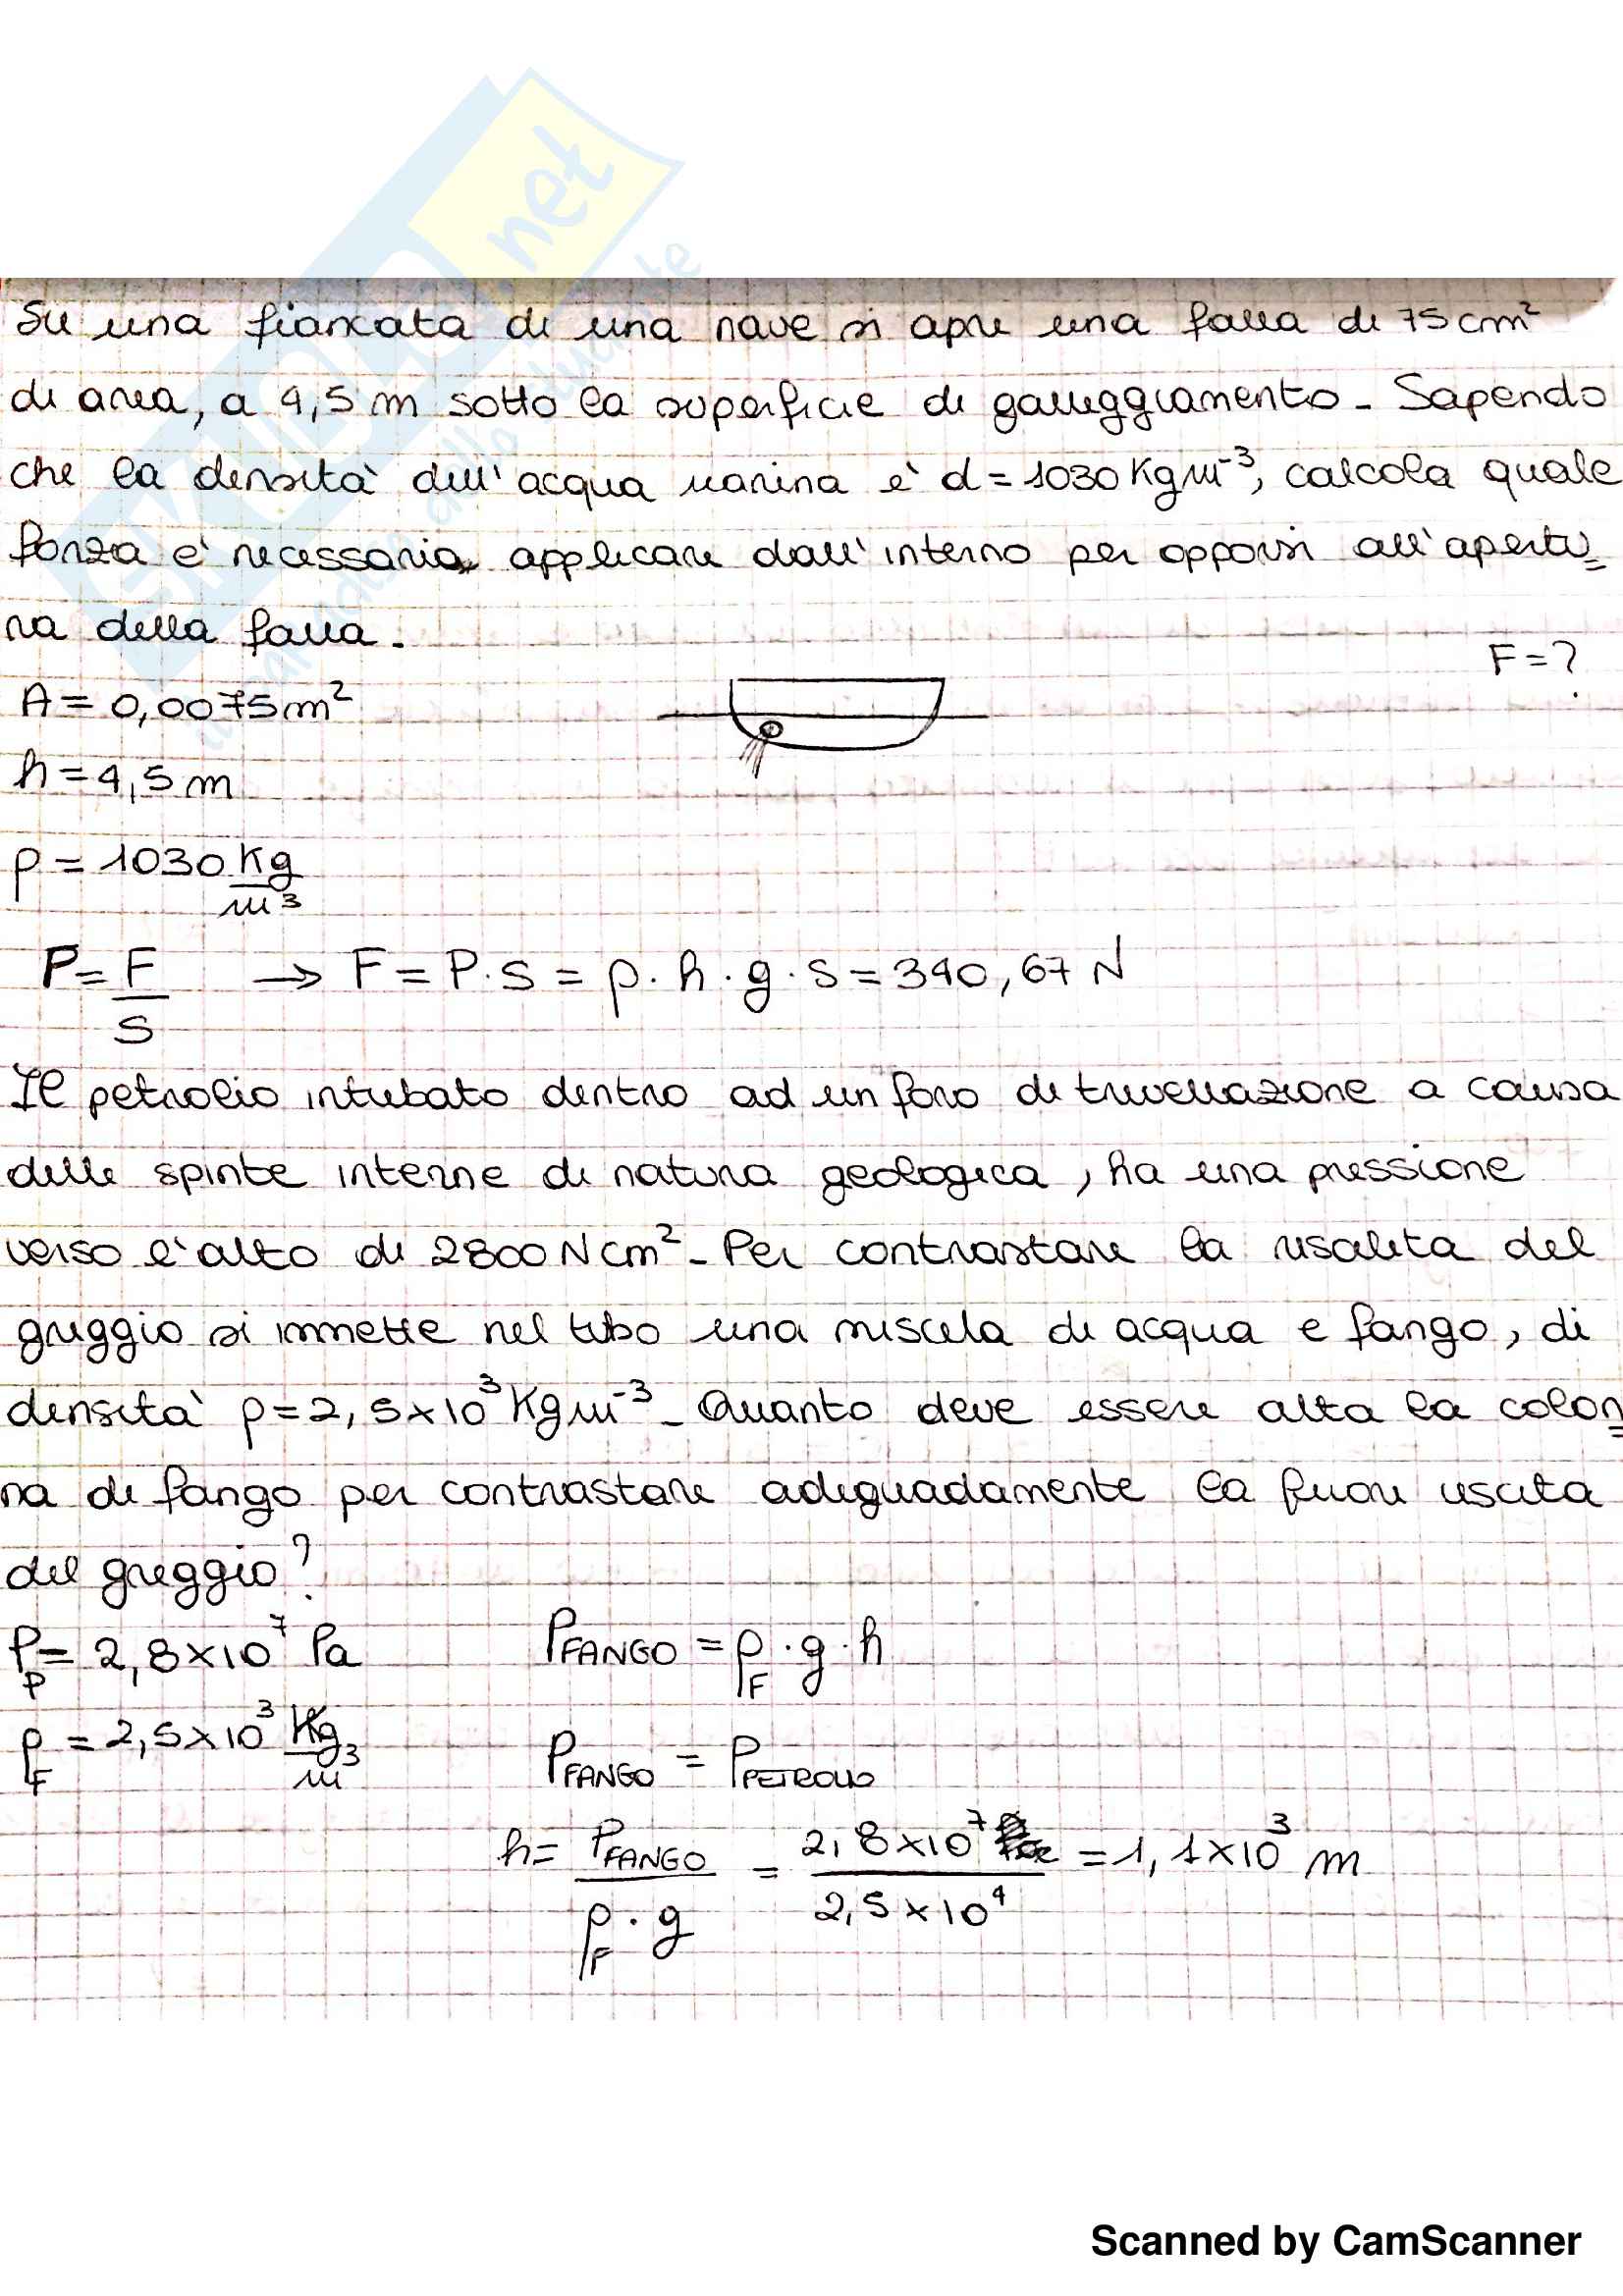 Su una fiancata di una nave si apre una falla di 75 cm²
di area, a 4,5 m sotto la superficie di galleggiamento. Sapendo
che la densità dell'acqua marina è d = 1030 Kg m⁻³, calcola quale
forza è necessaria applicare dall'interno per opporsi all'apertu=
ra della falla.
F = ?
A = 0,0075 m²
h = 4,5 m
ρ = 1030 Kg/m³
P = F/S → F = P · S = ρ · h · g · S = 340,67 N
Il petrolio intubato dentro ad un foro di trivellazione a causa
delle spinte interne di natura geologica, ha una pressione
verso l'alto di 2800 N cm². Per contrastare la risalita del
greggio si immette nel tubo una miscela di acqua e fango, di
densità ρ = 2,5 x 10³ Kg m⁻³. Quanto deve essere alta la colon=
na di fango per contrastare adeguadamente la fuori uscita
del greggio?
P_P = 2,8 x 10⁷ Pa P_FANGO = ρ_F · g · h
ρ_F = 2,5 x 10³ Kg/m³
P_FANGO = P_PETROLIO
h = P_FANGO / ρ_F · g = 2,8 x 10⁷ / 2,5 x 10⁴ = 1,1 x 10³ m
Scanned by CamScanner